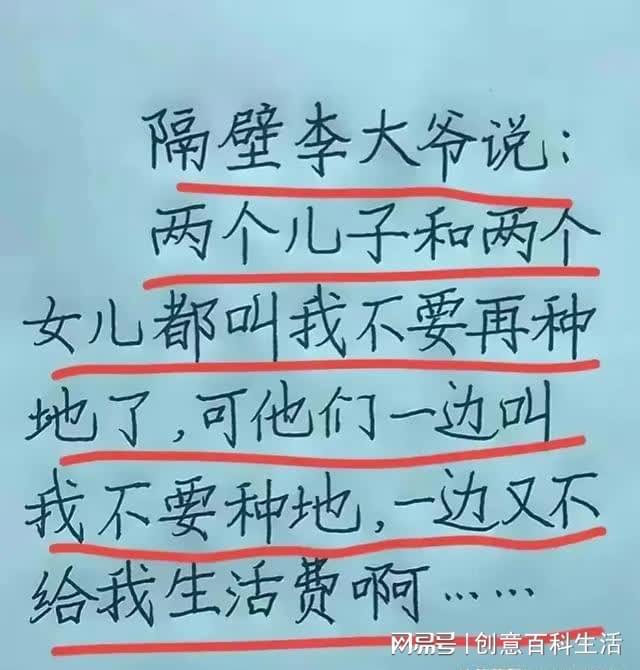 隔壁李大爷说:
两个儿子和两个
女儿都叫我不要再种
地了,可他们一边叫
我不要种地,一边又不
给我生活费啊……
网易号 | 创意百科生活